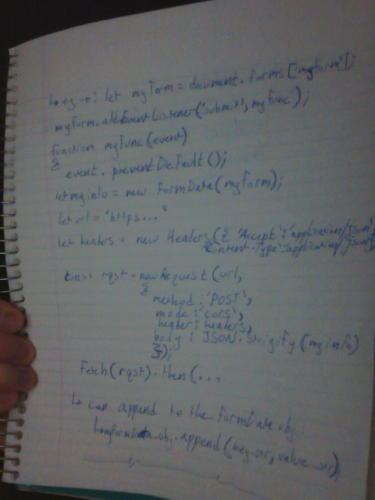 let myForm = document.forms['myform'];
myForm.addEventListener('submit', myFunc);
function myFunc(event)
{
event.preventDefault();
let myinfo = new FormData(myForm);
let url = "https..."
let headers = new Headers({ 'Accept':'application/json',
'Content-Type':'application/json'});
const rqst = new Request(url,
{
method: 'POST',
mode: 'cors',
header: headers,
body: JSON.strigify(myinfo)
});
Fetch(rqst).then(...
can append to the FormData obj
obj.append(